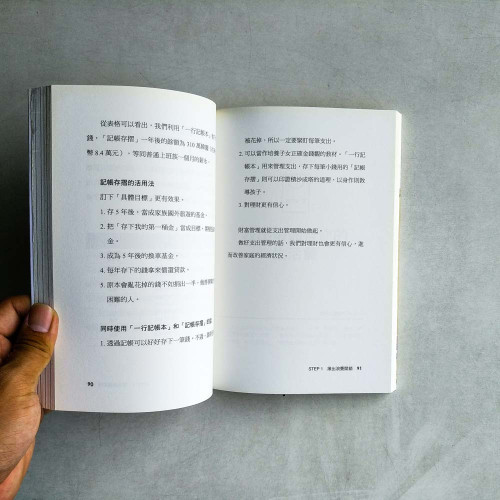 從表格可以看出，我們利用「一行記帳本」
錢，「記帳存摺」一年後的餘額為 310 萬韓圜
幣 8.4 萬元），等同普通上班族一個月的薪
記帳存摺的活用法
訂下「具體目標」更有效果。
1. 存 5 年後，當成家族國外旅遊的基金。
2. 把「存下我的第一桶金」當成目標，
金。
3. 成為 5 年後的推車基金。
4. 每年存下的錢拿來償還貸款。
5. 原本會亂花掉的錢不如捐出一半，
困難的人。
同時使用「一行記帳本」和「記帳存摺」
1. 透過記帳可以好好存下一筆錢，不過
90
被花掉，所以一定要緊盯每筆支出。
2. 可以當作培養子女正確金錢觀的教材。「一行記
帳本」用來管理支出，存下每筆小錢用的「記帳
存摺」則可以印證積沙成塔的道理，以身作則教
導孩子。
3. 對理財更有信心。
財富管理就從支出管理開始做起。
做好支出管理的話，我們對理財也會更有信心，進
而改善家庭的經濟狀況。
STEP 1
91